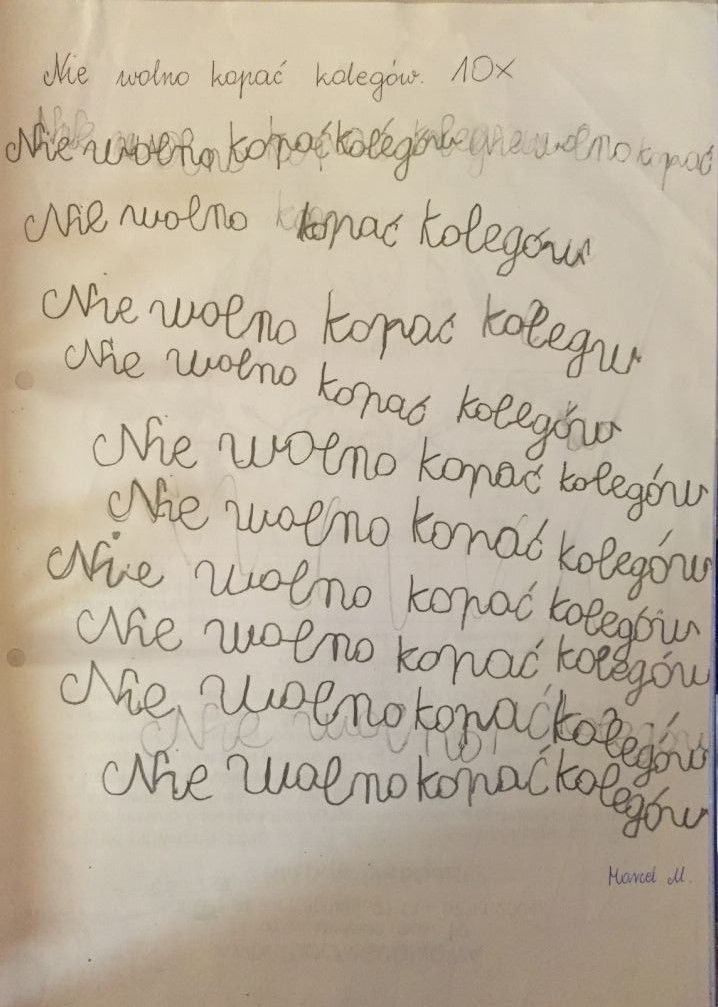 Nie wolno kopać kolegów. 10x
Nie wolno kopać kolegów nie wolno kopać
Nie wolno kopać kolegów
Nie wolno kopać kolegw
Nie wolno kopać kolegów
Nie wolno kopać kolegów
Nie wolno kopać kolegów
Nie wolno kopać kolegów
Nie wolno kopać kolegów
Nie wolno kopać kolegów
Nie wolno kopać kolegów
Marcel M.